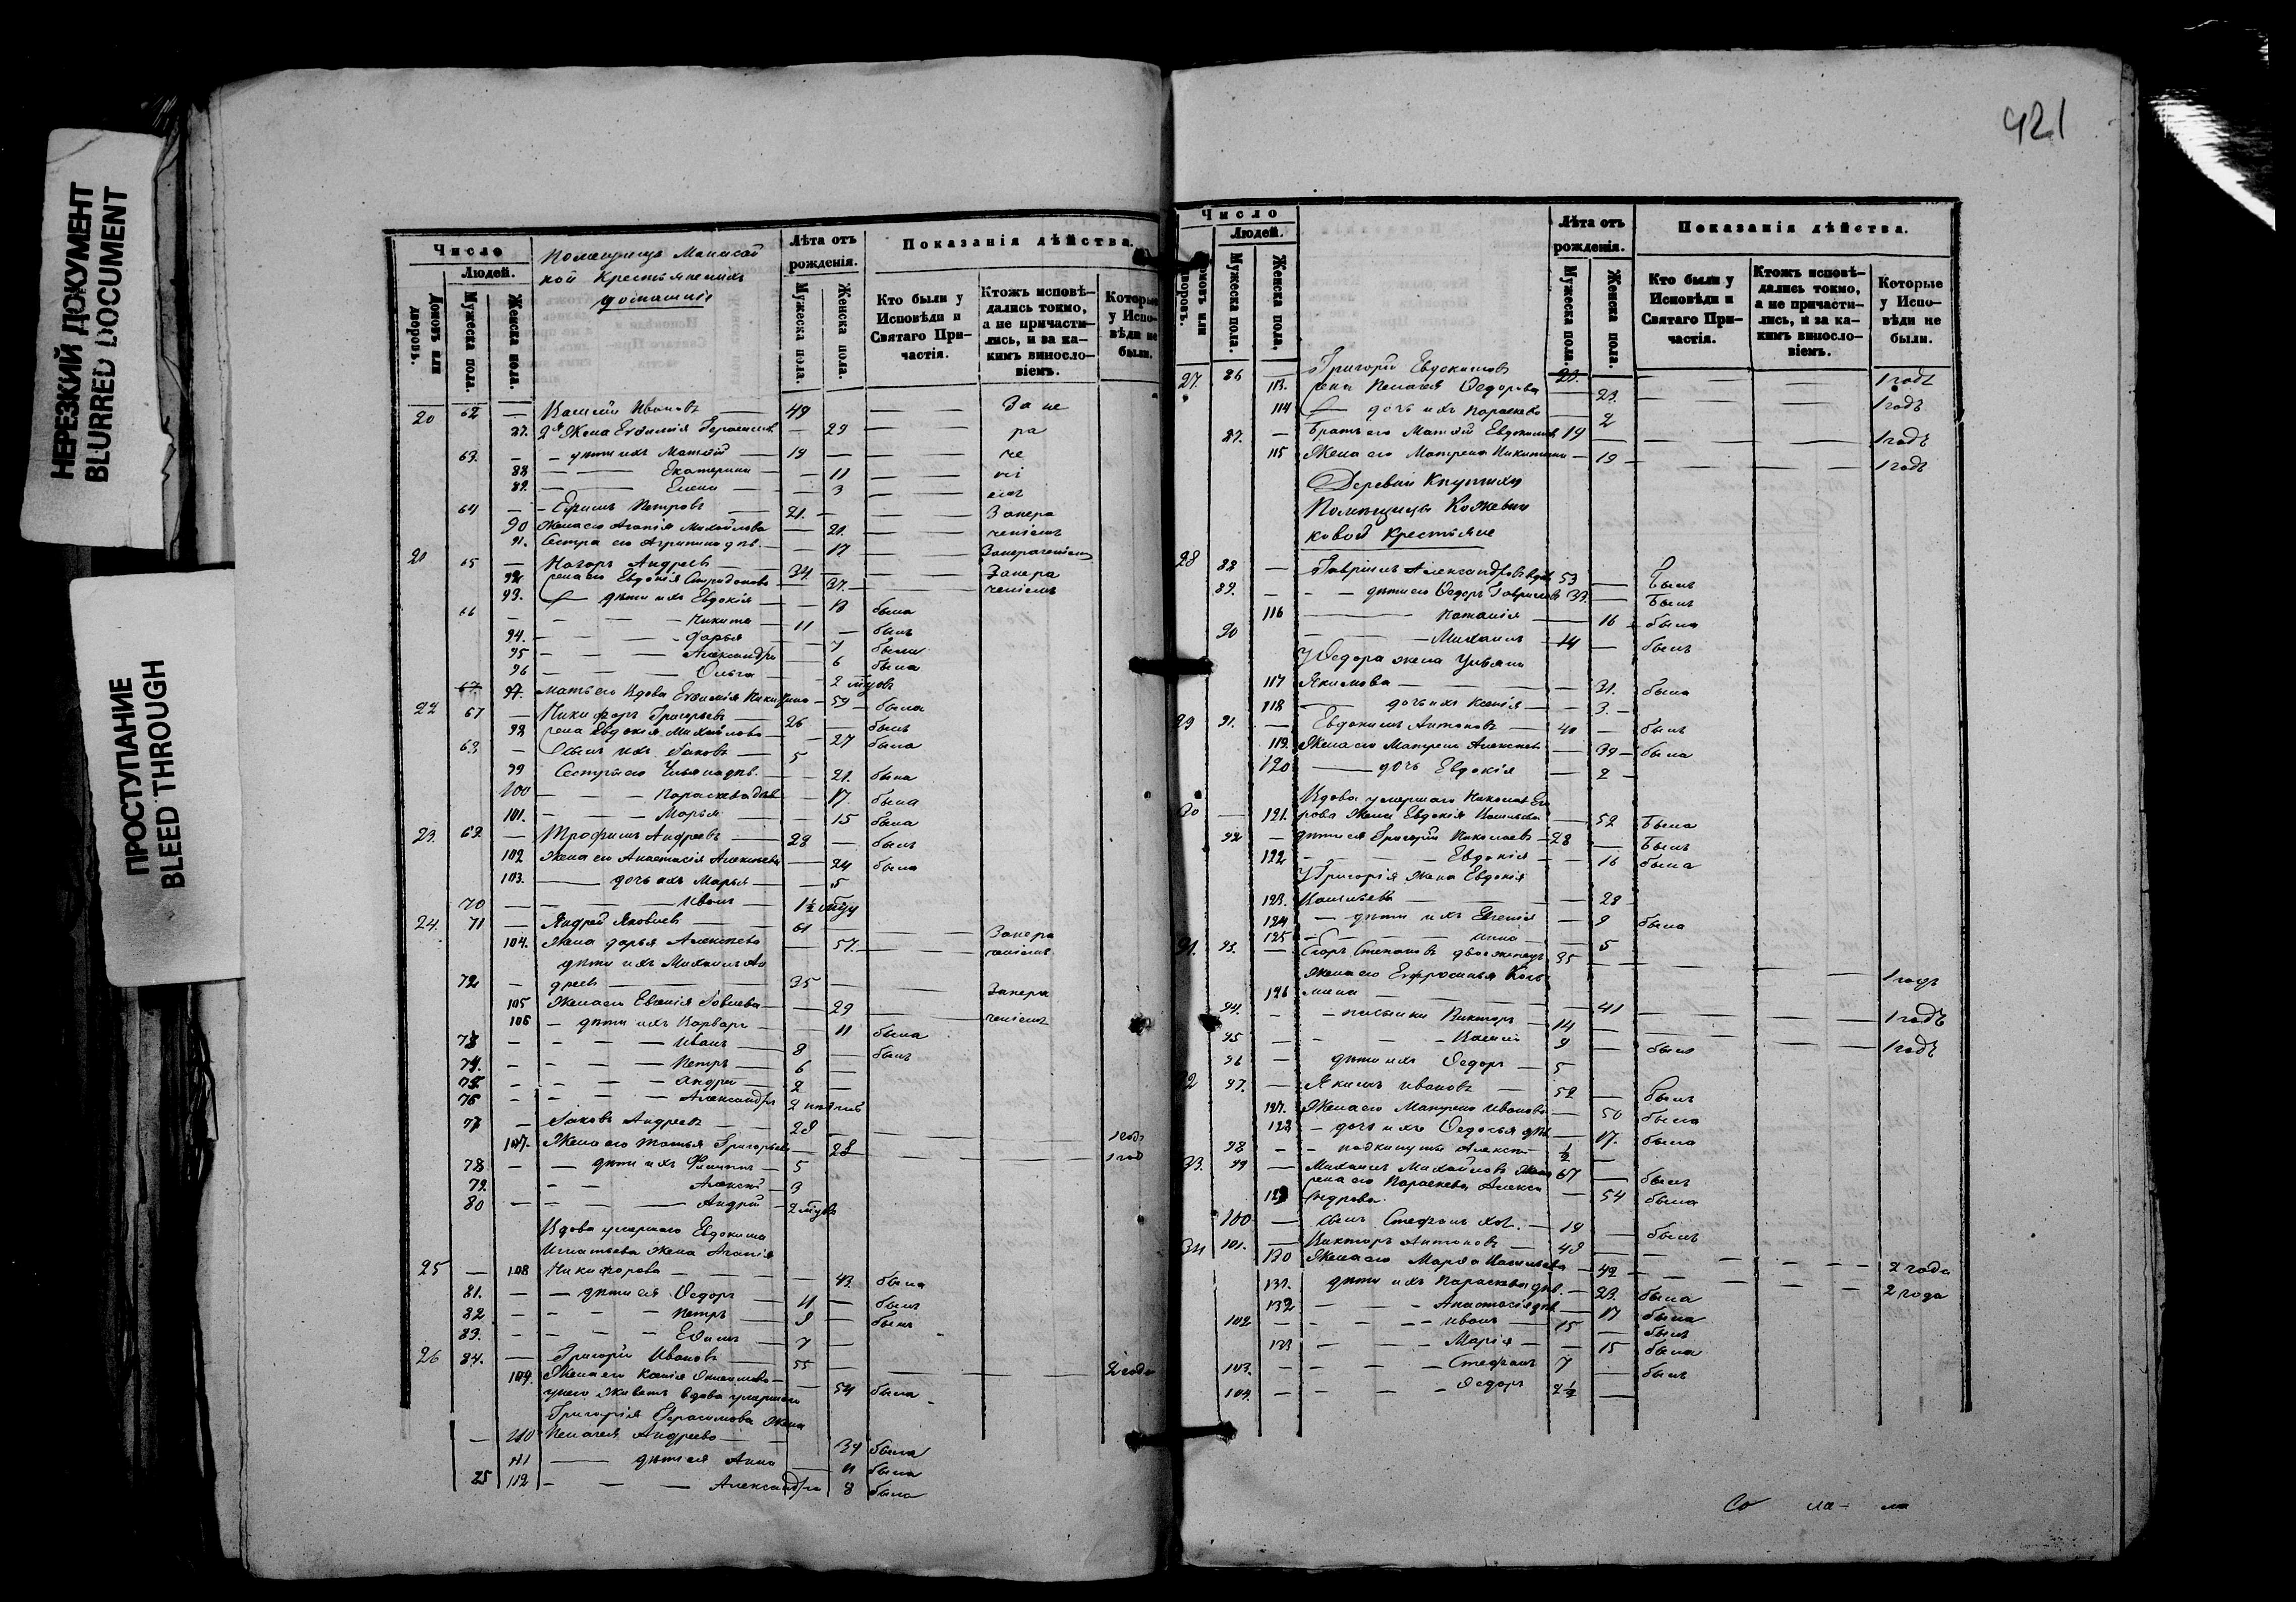 НЕРЕЗКИЙ ДОКУМЕНТ
BLURRED DOCUMENT
ПРОСТУПАНИЕ
BLEED THROUGH
Число
Людей.
Домовъ или дворовъ.
Мужеска пола.
Женска пола.
Помещицы
кой Крестьяне ихъ
домашніе
Лѣта отъ рожденія.
Мужеска пола.
Женска пола.
Показанія дѣйства.
Кто были у Исповѣди и Святаго Причастія.
Ктожъ исповѣдались токмо, а не причастились, и за какимъ винословіемъ.
Которые у Исповѣди не были.
20 62 — Василій Ивановъ — 49 — — За не
87. 2я Жена Евфимія — 29 — — ра
63. — — дѣти ихъ Матвѣй — 19 — — — че
88 — — Екатерина — — 11 — — ні
89. — — Елена — — 3 — — емъ
64 — — Ефимъ Петровъ — 21. — — — Занера
90 Жена его Агапія Михайлова — 21. — — ченіемъ
91. Сестра его Агрипина дѣв. — — 17 — Занераченіемъ
21 65 — Назаръ Андреевъ — 34 — — — Занера
92 жена его Евдокія Спиридонова — 37. — — ченіемъ
93. — дѣти ихъ Евдокія — — 13 была
66 — — — Никита — 11 — былъ
94. — — — Дарья — — 7 была
95 — — — Александра — 6 была
96 — — — Ольга — — 2 мцовъ
97. Мать его Вдова Евфимія Никитина — 59 — была
22 67 — Никифоръ Григорьевъ — 26 — былъ
98 жена Евдокія Михайлова — 27 была
68. — Сынъ ихъ Яковъ — 5
99 Сестры его Ульяна дѣв. — — 21. была
100 — — — Параскева дѣв — 17. была
101. — — — Марья — — 15 была
23. 69. — Трофимъ Андреевъ — 28 — былъ
102 Жена его Анастасія Алексѣева — 24 была
103. — дочь ихъ Марья — — 5
70 — — — Иванъ — 1½
24. 71 — Андрей Яковлевъ — 61 — — — Занера
104. Жена Дарья Алексѣева — 57. — — ченіемъ
дѣти ихъ Михаилъ Ан
72. — дреевъ — 35 — — — Занера
105 Жена его Евгенія — 29 — — ченіемъ
106 — дѣти ихъ Варвара — — 11 была
73 — — — — Иванъ — 8 — былъ
74. — — — — Петръ — 6 —
75. — — — — Андрей — 2 —
76 — — — — Александръ 2
77 — Яковъ Андреевъ — — 28 — — — 1 годъ
107. Жена его Татья Григорьева — 28 — — — 1 год
78. — — дѣти ихъ Филиппъ — 5
79. — — Алексѣй — 3
80 — — — — Андрей — 2 мцовъ
Вдова умершаго Евдокима
Игнатьева жена Агапія
25 — 108 Никифорова — — — 43 была
81. — — дѣти ея Ѳедоръ — 11 — былъ
82 — — — — Петръ — 9 — былъ
83. — — — — Ефимъ — 7 —
26 84. — Григорій Ивановъ — 55 — — — 2 года
109. Жена его Ксенія — 54 была
у него живетъ вдова умершаго
Григорія Герасимова жена
— 110 Пелагея Андреева — — 34 была
111 — дѣти ея Анна — 11 была
25 112 — — — Александра 8 была
421
Число
Людей.
Домовъ или дворовъ.
Мужеска пола.
Женска пола.
Лѣта отъ рожденія.
Мужеска пола.
Женска пола.
Показанія дѣйства.
Кто были у Исповѣди и Святаго Причастія.
Ктожъ исповѣдались токмо, а не причастились, и за какимъ винословіемъ.
Которые у Исповѣди не были.
27. 86 — Григорій Евдокимовъ — 23. — — — 1 годъ
113. жена Пелагея Ѳедорова — 23. — — — 1 годъ
114 — дочь ихъ Параскева — 2
87. — Братъ его Матвѣй Евдокимовъ 19 — — — 1 годъ
115 Жена его Матрена Никитина — 19 — — — 1 годъ
Деревни
Помѣщицы Кожевни
ковой Крестьяне
28 88 — Гавріилъ Александровъ вдов 53 — Былъ
89. — — дѣти его Ѳедоръ Гавриловъ 33. — Былъ
116 — Наталія — 16 — была
90 — Михаилъ — 14 — былъ
У Ѳедора жена Ульяна
117 Якимова — — — 31. была
118 — дочь ихъ Ксенія — — 3. —
29 91. — Евдокимъ Антоновъ — 40 — былъ
119. Жена его Матрена Алексѣева — 39 — была
120 — дочь Евдокія — 2 —
Вдова умершаго Николая Его
30 — 121. рова жена Евдокія Васильева — 52 Была
92 — дѣти ея Григорій Николаевъ — 28 — Былъ
122 — — — Евдокія — — 16 была
У Григорія жена Евдокія
123. Васильева — — — 28 —
124 — дѣти ихъ Евгенія — 9 была
125 — — Анна — — 5
31. 93. — Егоръ Степановъ двоеженецъ 35 — — — 1 годъ
Жена его Евфросинья Козь
126 мина — — — 41 — — — 1 годъ
94. — — пасынки Викторъ — 14 — — — 1 годъ
95 — — — — Василій 9 — былъ
96 — дѣти ихъ Ѳедоръ — 5
32 97. — Якимъ Ивановъ — 52 — былъ
127. Жена его Матрена Иванова — 50 была
128 — дочь ихъ Ѳедосья дѣв. — 17. была
98 — — подкинутый Алексѣй ½ —
33. 99 — Михаилъ Михайловъ 67 — былъ
жена его Параскева Алекса
129 ндрова. — 54 была
100 — сынъ Стефанъ хол. — 19 — былъ
34 101. — Викторъ Антоновъ — 49 — — — 2 года
130 Жена его Марья Васильева — 42 — — — 2 года
131. дѣти ихъ Параскева дѣв. — 23. была
132 — — — Анастасія дѣв — 17 была
102 — — — — Иванъ — 15 — былъ
133 — — — — Марія — — 15 была
103. — — — — Стефанъ 7 — былъ
104. — — — — Ѳедоръ 2½ —